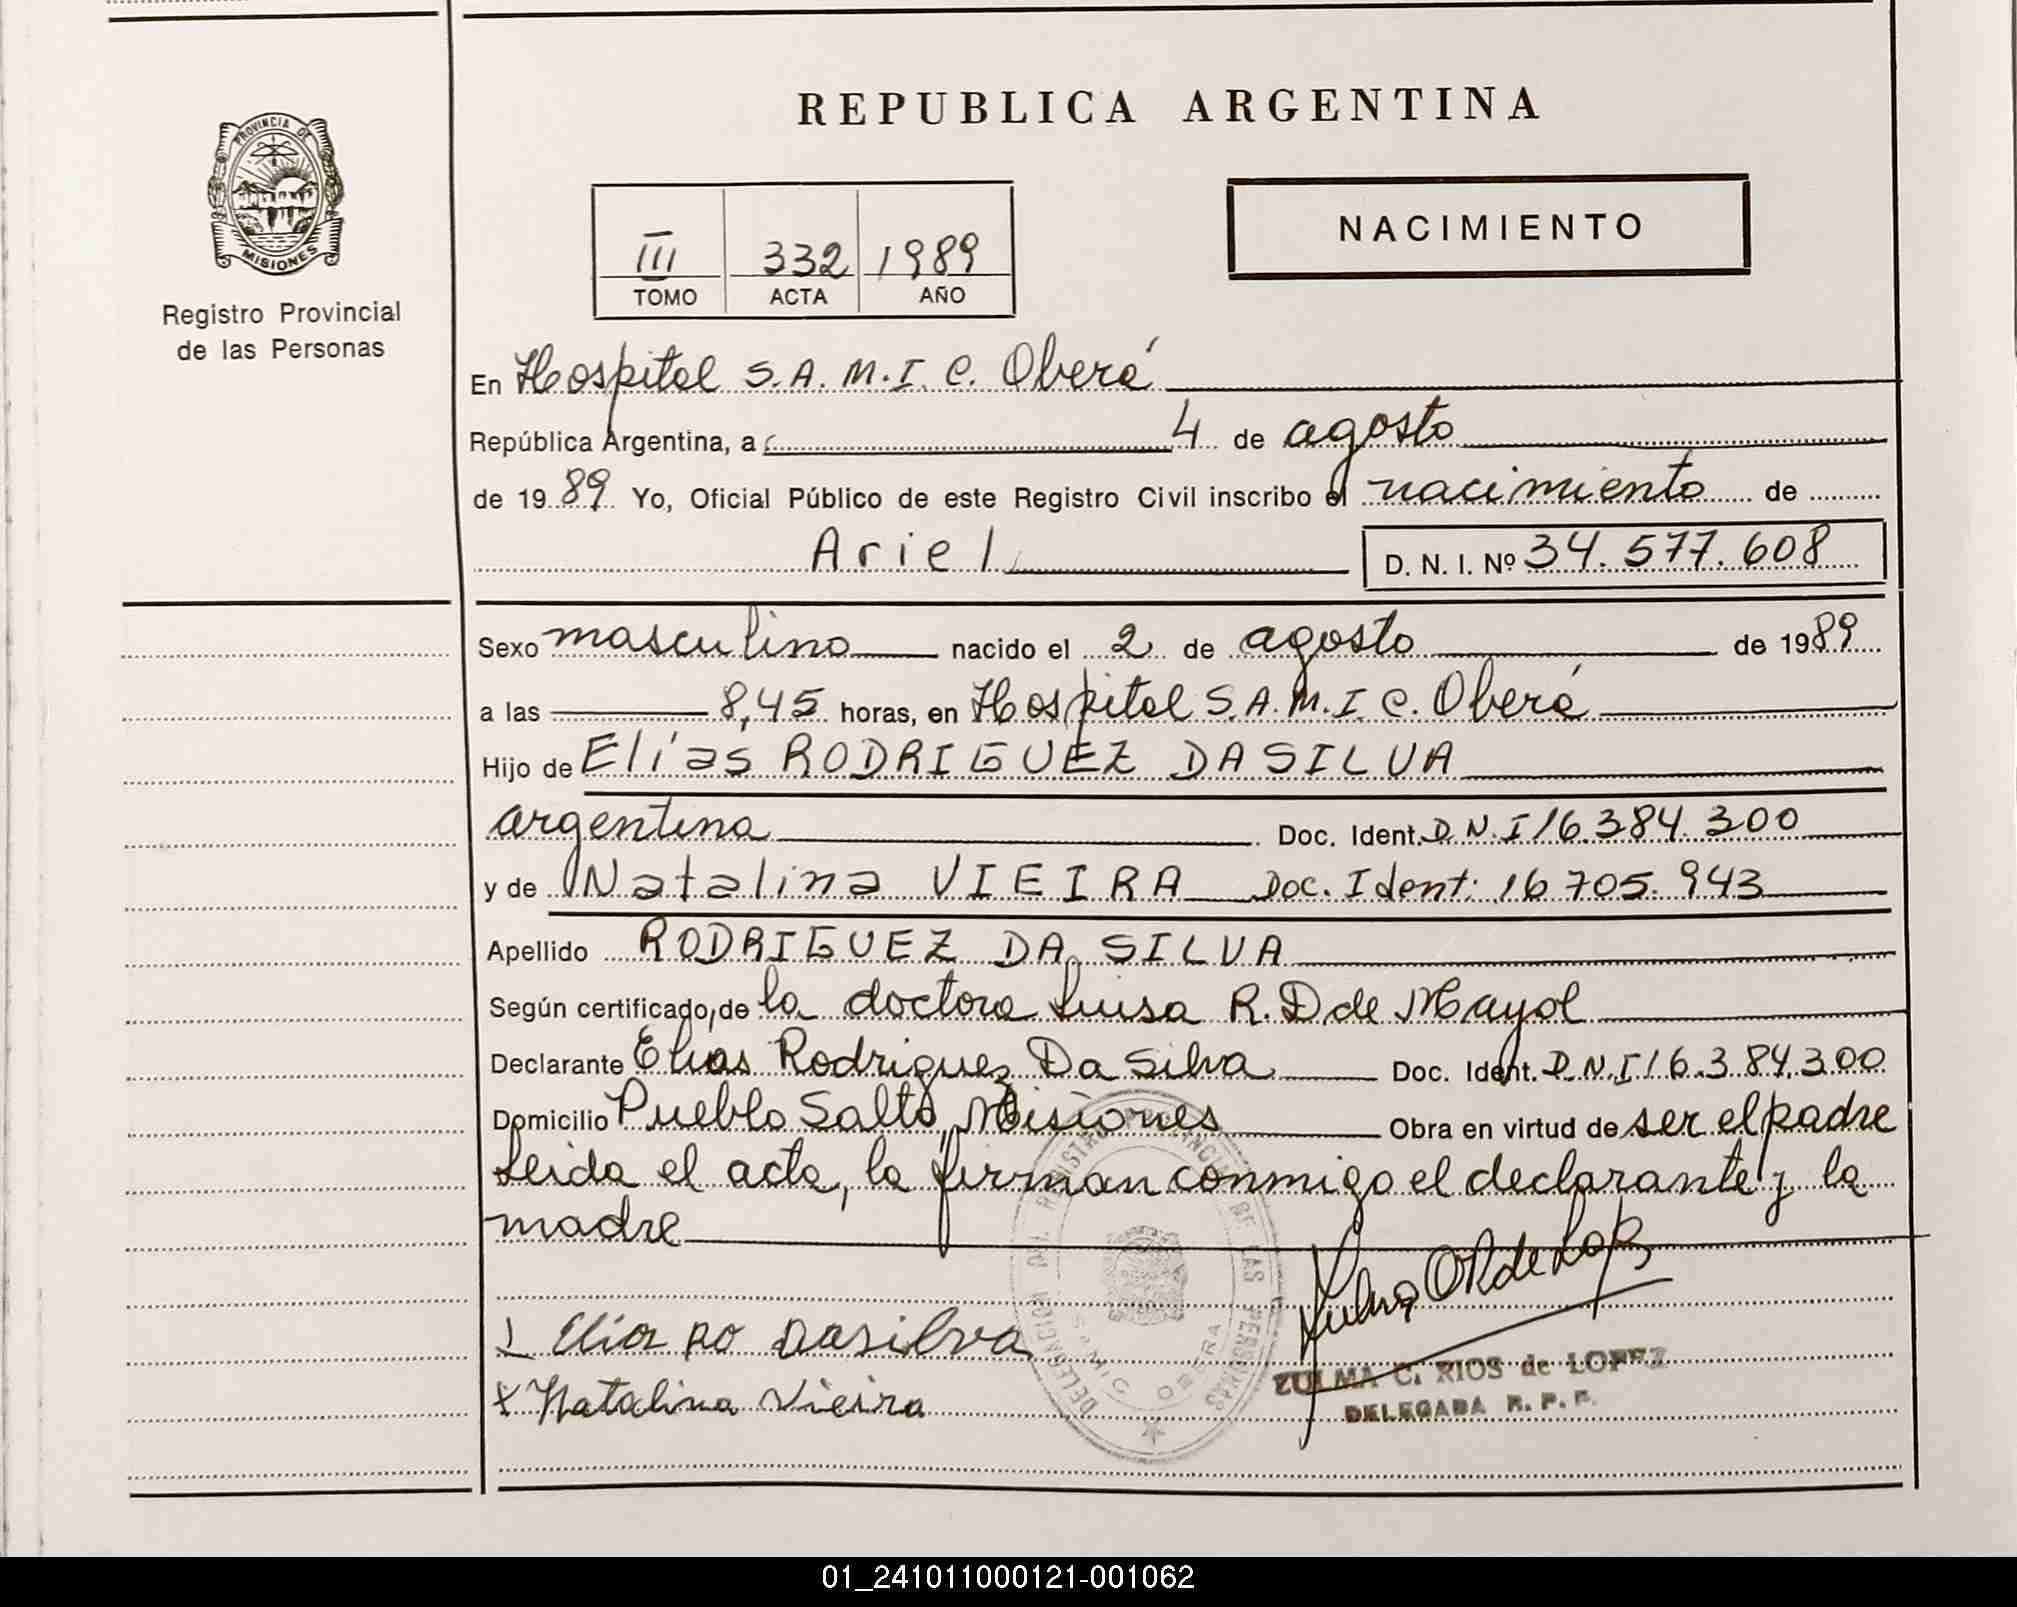 REPUBLICA ARGENTINA
PROVINCIA DE
MISIONES
Registro Provincial
de las Personas
NACIMIENTO
III 332 1989
TOMO ACTA AÑO
En Hospital S.A.M.I.C. Oberá
República Argentina, a 4 de agosto
de 1989 Yo, Oficial Público de este Registro Civil inscribo el nacimiento de
Ariel D. N. I. Nº 34.577.608
Sexo masculino nacido el 2 de agosto de 1989
a las 8,45 horas, en Hospital S.A.M.I.C. Oberá
Hijo de Elías RODRIGUEZ DA SILVA
argentina Doc. Ident. D.N.I 16.384.300
y de Natalina VIEIRA Doc. Ident: 16.705.943
Apellido RODRIGUEZ DA SILVA
Según certificado, de la doctora Luisa R. D de Mayol
Declarante Elias Rodriguez Da Silva Doc. Ident. D.N.I 16.384.300
Domicilio Pueblo Salto, Misiones Obra en virtud de ser el padre
Leida el acta, la firman conmigo el declarante y la
madre
Elia Ro Dasilva
x Natalina Vieira
ZULMA C. RIOS de LOPEZ
DELEGADA R. P. P.
DELEGACION DEL REGISTRO PROVINCIAL DE LAS PERSONAS
SAMIC OBERA
01_241011000121-001062